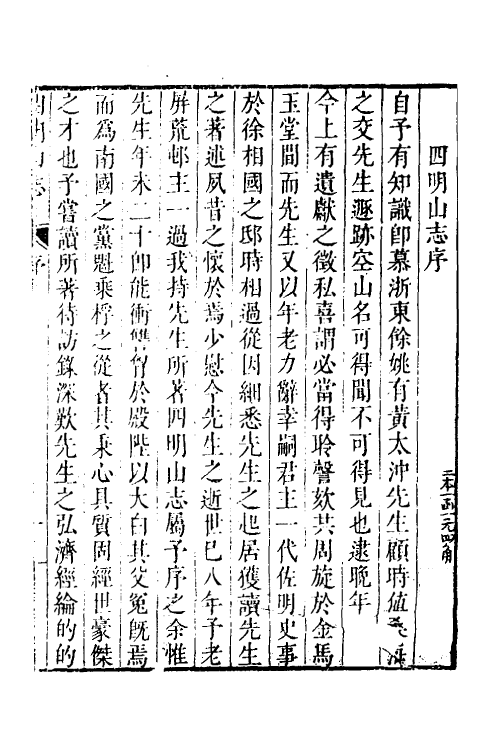 四明山志序
自予有知識卽慕浙東餘姚有黃太沖先生顧時值
之交先生遯跡空山名可得聞不可得見也逮晚年
今上有遺獻之徵私喜謂必當得聆謦欬共周旋於金馬
玉堂間而先生又以年老力辭幸嗣君主一代佐明史事
於徐相國之邸時相過從因細悉先生之起居獲讀先生
之著述夙昔之懷於焉少慰今先生之逝世已八年予老
屏荒邨主一過我持先生所著四明山志屬予序之余惟
先生年未二十卽能衝讐胷於殿陛以大白其父冤旣焉
而爲南國之黨魁乘桴之從者其秉心具質固經世豪傑
之才也予嘗讀所著待訪錄深歎先生之弘濟經綸的的
四明山志
序